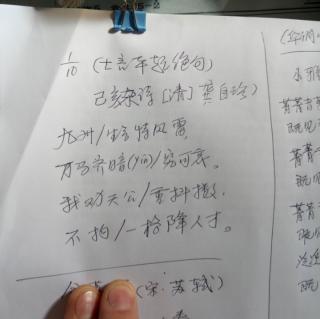 1/10 (七言平起绝句)
己亥杂诗 [清] 龚自珍
九州/生气恃风雷,
万马齐喑(yīn)/究可哀。
我劝天公/重抖擞,
不拘/一格降人才。
(宋·苏轼)
菁菁
既见
菁菁
既
菁菁
既
既